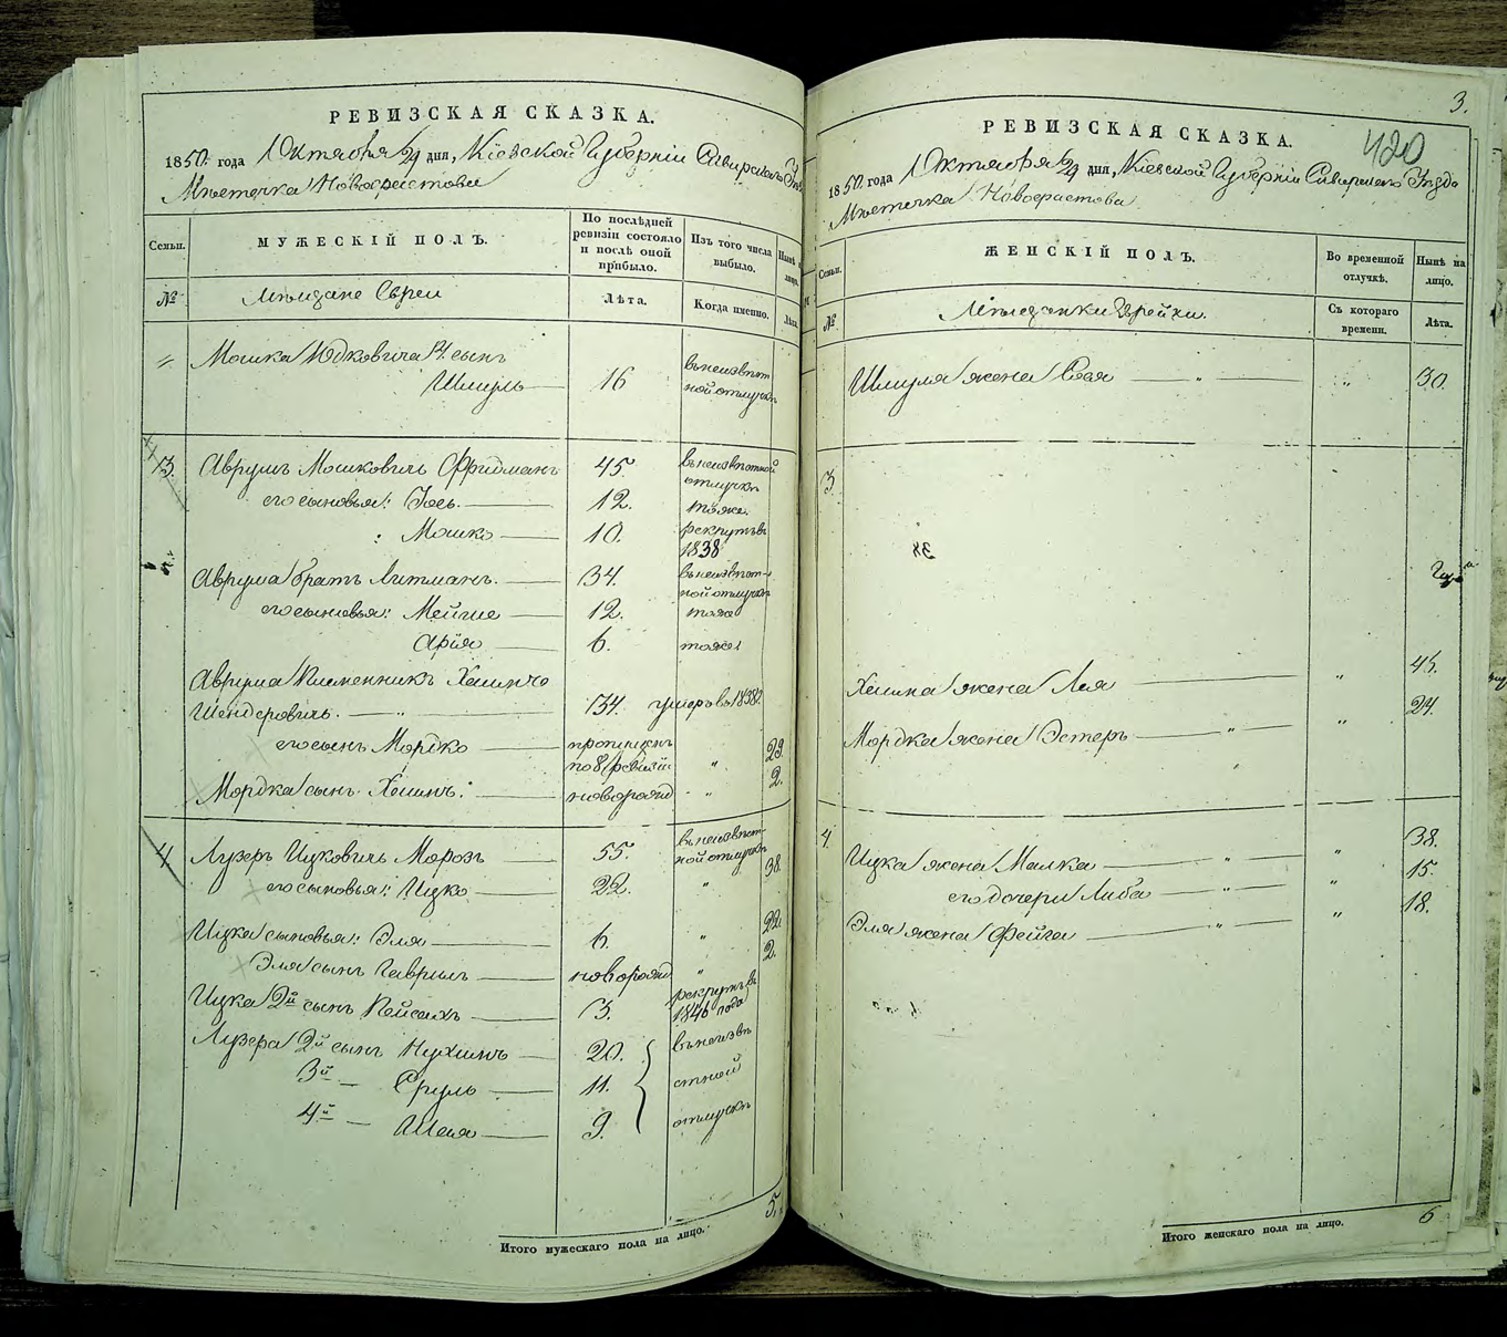 РЕВИЗСКАЯ СКАЗКА.
1850. года Октября 6/24 дня, Кіевской Губерніи Сквирскаго
Мѣстечка Новофастова
Семьи.
МУЖЕСКІЙ ПОЛЪ.
По послѣдней ревизіи состояло и послѣ оной прибыло.
Изъ того числа выбыло.
№
Мѣщане Евреи
Лѣта.
Когда именно.
Лѣта.
Мошка Юдковича 4. сынъ
Шмуль 16 въ неизвѣстной отлучкѣ
3. Аврумъ Мошковичь Фридманъ 45. въ неизвѣстной отлучкѣ
его сыновья: Іось. 12. тоже.
: Мошко 10. рекрутъ въ 1838
Аврума братъ Литманъ. 34. въ неизвѣстной отлучкѣ
его сыновья: Мейше 12. тоже
Арія 6. тоже
Аврума племенникъ Хаимъ
Шендеровичь. 34. умеръ въ 1838
его сынъ Мордко пропущенъ по 8 ревизіи " 29.
Мордка сынъ Хаимъ. новорожд " 2.
4. Лузеръ Ицковичь Морозъ 55. въ неизвѣстной отлучкѣ
его сыновья: Ицко 22. " 38.
Ицка сыновья: Эля 6. " 22.
Эля сынъ Гаврилъ новорожд " 2.
Ицка 2й сынъ Пейсахъ 3. рекрутъ въ 1846 года
Лузера 2й сынъ Нухимъ 20. въ неизвѣ
3й — Сруль 11. стной
4й — Шая 9. отлучкѣ
5.
Итого мужескаго пола на лицо.
3.
420
РЕВИЗСКАЯ СКАЗКА.
1850. года Октября 6/24 дня, Кіевской Губерніи Сквирскаго Уѣзда
Мѣстечка Новофастова.
Семьи.
ЖЕНСКІЙ ПОЛЪ.
Во временной отлучкѣ.
Нынѣ на лицо.
№
Мѣщанки Еврейки.
Съ котораго времени.
Лѣта.
Шмуля жена Сося " " 30.
3.
Хаима жена Лея " 45.
Мордка жена Эстеръ " " 24.
4. Ицка жена Малка " " 38.
его дочери Либа " " 15.
Эля жена Фейга " " 18.
6
Итого женскаго пола на лицо.